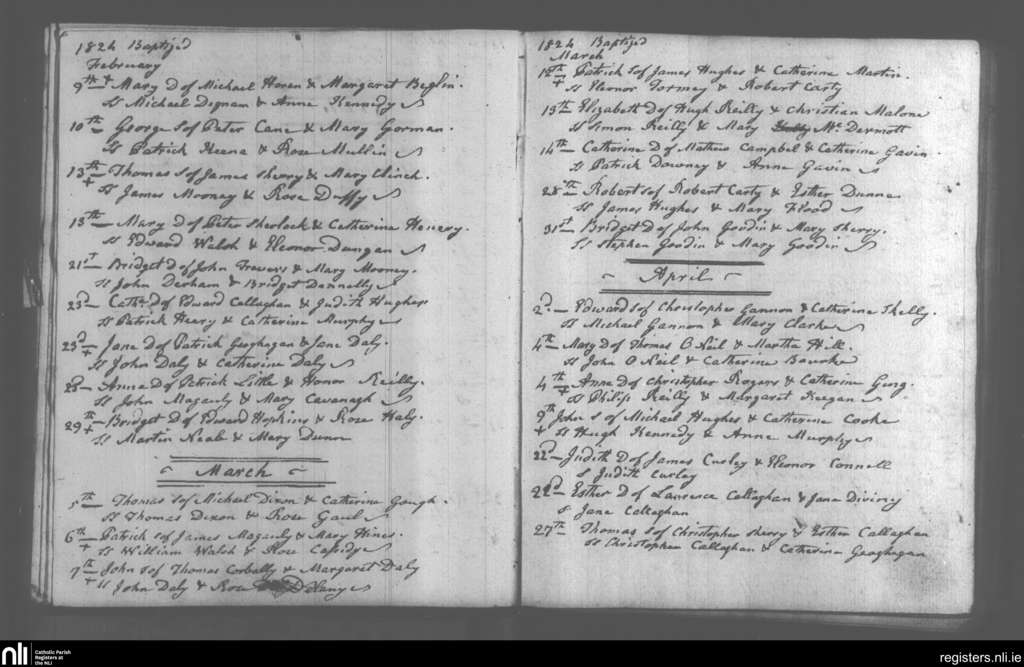 1824 Baptized
February
9th + Mary D of Michael Horen & Margaret Beglin.
Ss Michael Dignam & Anne Kennedy
10th George S of Peter Cane & Mary Gorman.
Ss Patrick Keena & Rose Mullin
13th + Thomas S of James Sherry & Mary Clinch.
Ss James Mooney & Rose Duffy
13th Mary D of Peter Sherlock & Catherine Henery.
Ss Edward Walsh & Eleonor Dungan
21st Bridget D of John Travers & Mary Mooney.
Ss John Derham & Bridget Donnelly
23d Cath: D of Edward Callaghan & Judith Hughes
Ss Patrick Heary & Catherine Murphy
23d + Jane D of Patrick Geoghegan & Jane Daly.
Ss John Daly & Catherine Daly
28 Anna D of Patrick Little & Honor Reilly.
Ss John Magauly & Mary Cavanagh
29th + Bridget D of Edward Hopkins & Rose Haly.
Ss Martin Neale & Mary Dunn
March
5th Thomas S of Michael Dixon & Catherine Gough.
Ss Thomas Dixon & Rose Gaul
6th + Patrick S of James Magauly & Mary Hines.
Ss William Walsh & Rose Cassidy
7th + John S of Thomas Corbally & Margaret Daly
Ss John Daly & Rose Delany
1824 Baptized
March
12th + Patrick S of James Hughes & Catherine Martin.
Ss Eleonor Tormey & Robert Carty
13th Elizabeth D of Hugh Reilly & Christian Malone
Ss Simon Reilly & Mary McDermott
14th Catherine D of Mathew Campbel & Catherine Gavin.
Ss Patrick Downey & Anne Gavin
28th Robert S of Robert Carty & Esther Dunne
Ss James Hughes & Mary Flood
31st Bridget D of John Goodin & Mary Sherry.
Ss Stephen Goodin & Mary Goodin
April
2d Edward S of Christopher Gannon & Catherine Skelly.
Ss Michael Gannon & Mary Clarke
4th Mary D of Thomas O Neil & Martha Hill.
Ss John O Neil & Catherine Bourke
4th + Anne D of Christopher Rogers & Catherine
Ss Philip Reilly & Margaret Keegan
9th + John S of Michael Hughes & Catherine Cooke
Ss Hugh Kennedy & Anne Murphy
22d Judith D of James Curley & Eleonor Connell
S Judith Curley
22d Esther D of Laurence Callaghan & Jane Diviny
S Jane Callaghan
27th Thomas S of Christopher Sherry & Esther Callaghan
Ss Christopher Callaghan & Catherine Geoghegan
nli
Catholic Parish
Registers at
the NLI
registers.nli.ie